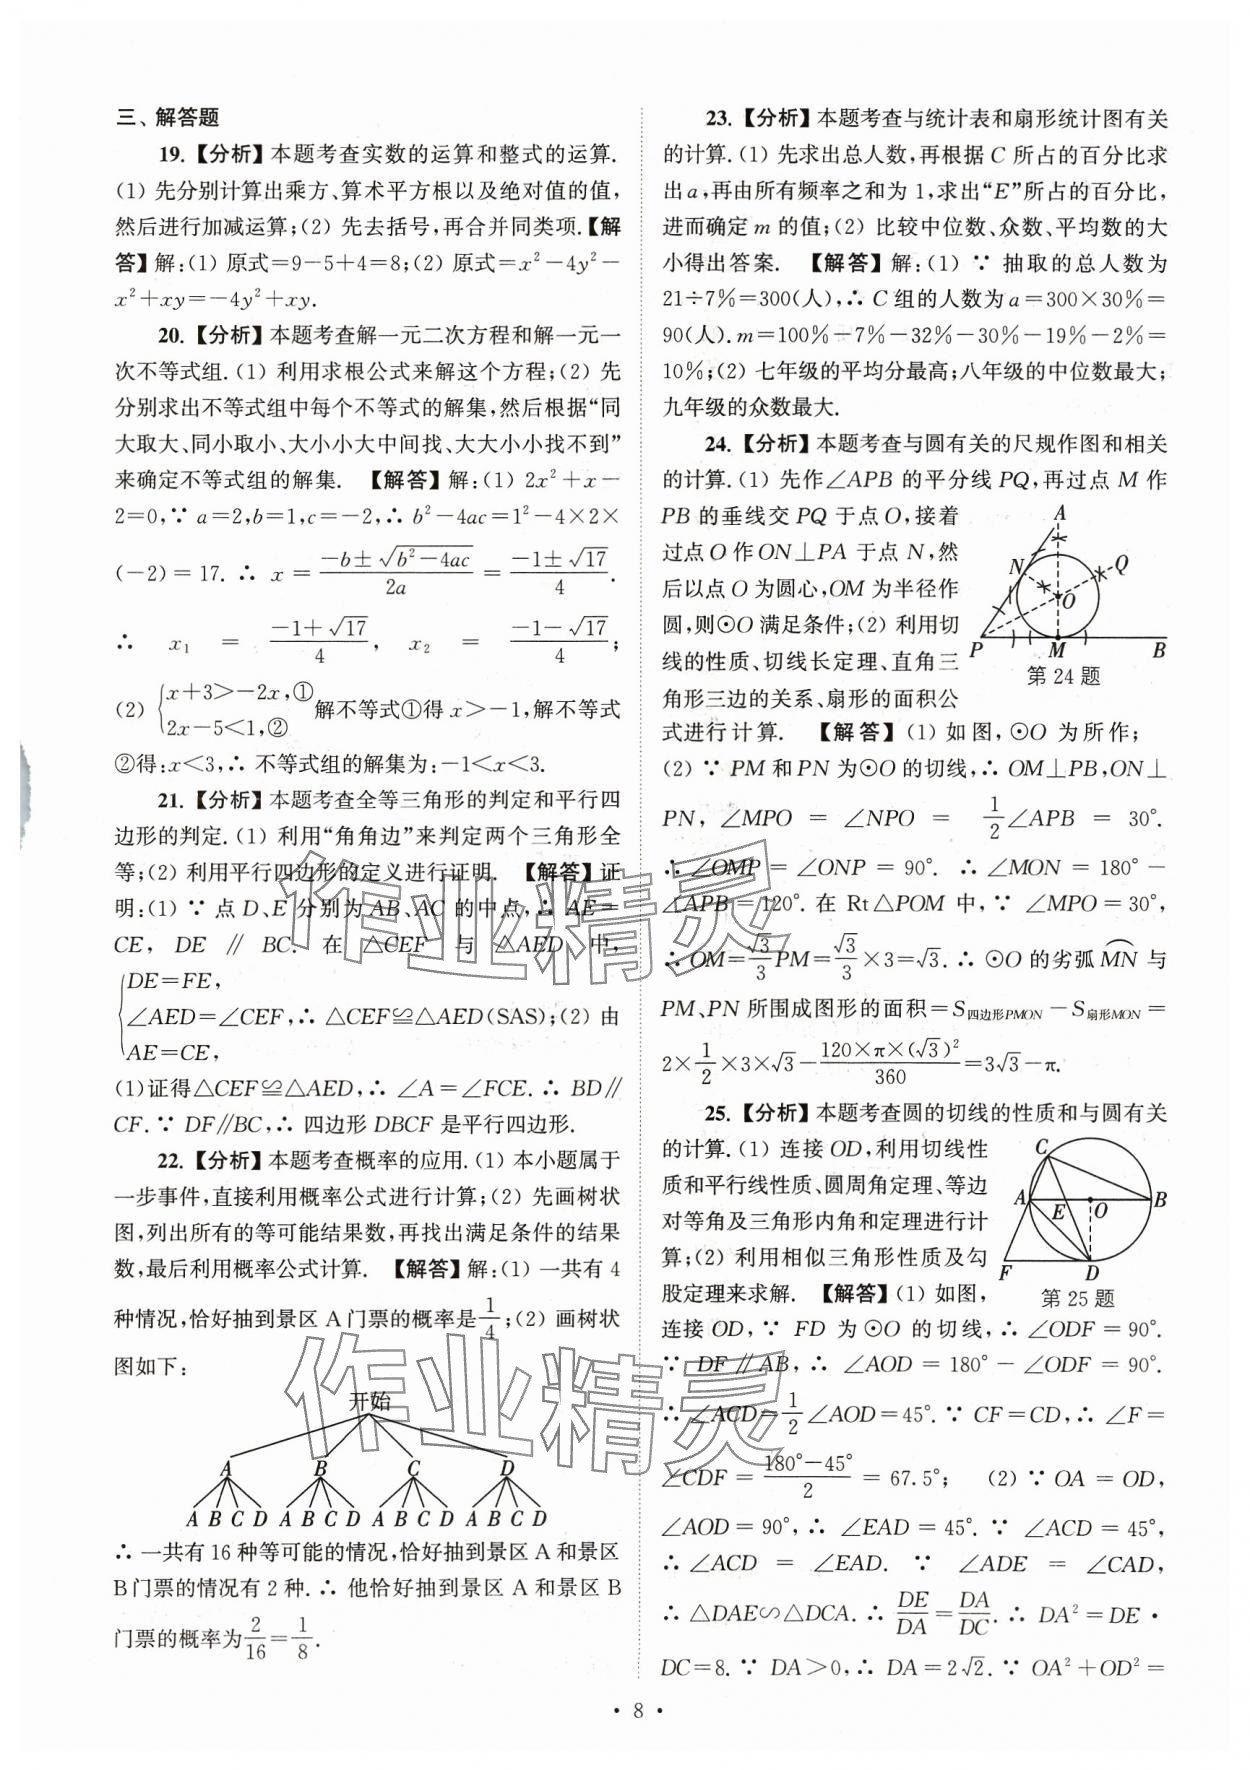 三、解答题
19.【分析】本题考查实数的运算和整式的运算.
(1) 先分别计算出乘方、算术平方根以及绝对值的值,
然后进行加减运算;(2) 先去括号,再合并同类项.【解
答】解:(1) 原式=9-5+4=8;(2) 原式=x²-4y²-
x²+xy=-4y²+xy.
20.【分析】本题考查解一元二次方程和解一元一
次不等式组.(1) 利用求根公式来解这个方程;(2) 先
分别求出不等式组中每个不等式的解集,然后根据“同
大取大、同小取小、大小小大中间找、大大小小找不到”
来确定不等式组的解集. 【解答】解:(1) 2x²+x-
2=0,∵ a=2,b=1,c=-2,∴ b²-4ac=1²-4×2×
(-2)=17. ∴ x=(-b±√(b²-4ac))/2a=(-1±√17)/4.
∴ x₁ = (-1+√17)/4, x₂ = (-1-√17)/4;
(2) {x+3>-2x,① 2x-5<1,② 解不等式①得 x>-1,解不等式
②得:x<3,∴ 不等式组的解集为:-1<x<3.
21.【分析】本题考查全等三角形的判定和平行四
边形的判定.(1) 利用“角角边”来判定两个三角形全
等;(2) 利用平行四边形的定义进行证明. 【解答】证
明:(1) ∵ 点 D、E 分别为 AB、AC 的中点,∴ AE=
CE, DE ∥ BC. 在 △CEF 与 △AED 中,
{DE=FE,
∠AED=∠CEF,∴ △CEF≌△AED(SAS);(2) 由
AE=CE,
(1)证得△CEF≌△AED,∴ ∠A=∠FCE.∴ BD∥
CF.∵ DF∥BC,∴ 四边形 DBCF 是平行四边形.
22.【分析】本题考查概率的应用.(1) 本小题属于
一步事件,直接利用概率公式进行计算;(2) 先画树状
图,列出所有的等可能结果数,再找出满足条件的结果
数,最后利用概率公式计算. 【解答】解:(1) 一共有 4
种情况,恰好抽到景区 A 门票的概率是1/4;(2) 画树状
图如下:
开始
A B C D
A B C D A B C D A B C D A B C D
∴ 一共有 16 种等可能的情况,恰好抽到景区 A 和景区
B 门票的情况有 2 种.∴ 他恰好抽到景区 A 和景区 B
门票的概率为2/16=1/8.
23.【分析】本题考查与统计表和扇形统计图有关
的计算.(1) 先求出总人数,再根据 C 所占的百分比求
出 a,再由所有频率之和为 1,求出“E”所占的百分比,
进而确定 m 的值;(2) 比较中位数、众数、平均数的大
小得出答案. 【解答】解:(1) ∵ 抽取的总人数为
21÷7%=300(人),∴ C 组的人数为 a=300×30%=
90(人).m=100%-7%-32%-30%-19%-2%=
10%;(2) 七年级的平均分最高;八年级的中位数最大;
九年级的众数最大.
24.【分析】本题考查与圆有关的尺规作图和相关
的计算.(1) 先作∠APB 的平分线 PQ,再过点 M 作
PB 的垂线交 PQ 于点 O,接着
过点 O 作 ON⊥PA 于点 N,然
后以点 O 为圆心,OM 为半径作
圆,则⊙O 满足条件;(2) 利用切
线的性质、切线长定理、直角三
角形三边的关系、扇形的面积公
A
N
Q
O
P
M
B
第 24 题
式进行计算. 【解答】(1) 如图,⊙O 为所作;
(2) ∵ PM 和 PN 为⊙O 的切线,∴ OM⊥PB,ON⊥
PN, ∠MPO = ∠NPO = 1/2∠APB = 30°.
∴ ∠OMP = ∠ONP = 90°. ∴ ∠MON = 180° -
∠APB=120°. 在 Rt△POM 中,∵ ∠MPO=30°,
∴ OM=√3/3PM=√3/3×3=√3.∴ ⊙O 的劣弧MN 与
PM、PN 所围成图形的面积=S四边形PMON-S扇形MON=
2×1/2×3×√3-(120×π×(√3)²)/360=3√3-π.
25.【分析】本题考查圆的切线的性质和与圆有关
的计算.(1) 连接 OD,利用切线性
质和平行线性质、圆周角定理、等边
对等角及三角形内角和定理进行计
算;(2) 利用相似三角形性质及勾
股定理来求解. 【解答】(1) 如图,
C
A
E
O
B
F
D
第 25 题
连接 OD,∵ FD 为⊙O 的切线,∴ ∠ODF=90°.
∵ DF∥AB,∴ ∠AOD=180°-∠ODF=90°.
∴ ∠ACD=1/2∠AOD=45°.∵ CF=CD,∴ ∠F=
∠CDF=(180°-45°)/2=67.5°; (2) ∵ OA=OD,
∠AOD=90°,∴ ∠EAD=45°.∵ ∠ACD=45°,
∴ ∠ACD = ∠EAD. ∵ ∠ADE = ∠CAD,
∴ △DAE∽△DCA.∴ DE/DA=DA/DC.∴ DA²=DE·
DC=8.∵ DA>0,∴ DA=2√2.∵ OA²+OD²=
· 8 ·
作业精灵
作业精灵